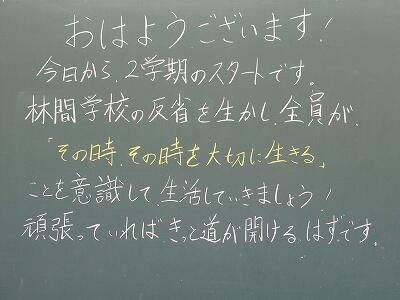 おはようございます!
今日から、2学期のスタートです。
林間学校の反省を生かし、全員が、
「その時、その時を大切に生きる」
ことを意識して、生活していきましょう!
頑張っていれば、きっと道が開けるはずです。